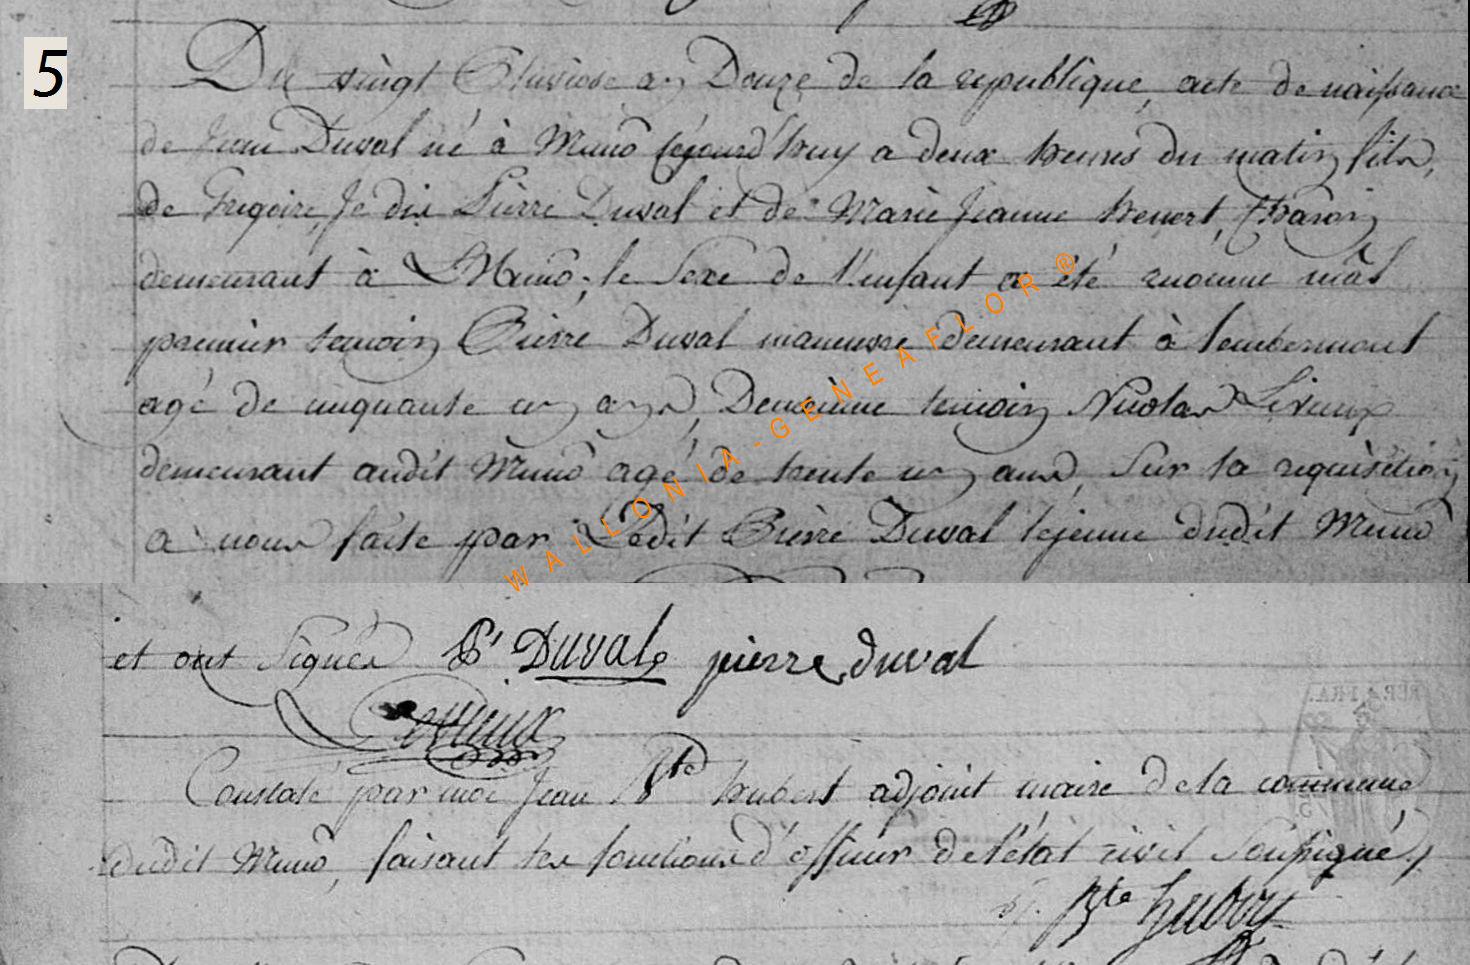 5
Du vingt Pluviose an Douze de la republique, acte de naissance
de Jean Duval né à Muno cejourd'huy a deux heures du matin fils,
de Gregoire, Je dis Pierre Duval et de Marie Jeanne henert,
demeurant à Muno; le Sexe de l'enfant a été reconnu mâl
premier temoin Pierre Duval manœuvre demeurant à lambermont
agé de cinquante un ans, Deuxieme temoin Nicolas Liveux
demeurant audit Muno agé de trente un ans, Sur la requisition
a nous faite par Ledit Pierre Duval lejeune dudit Muno
et ont Signés P. Duval pierre duval
Constaté par moi Jean Bte hubert adjoint maire de la commune
dudit Muno, faisant les fonctions d'officier de l'état civil Soussigné,
Bte hubert
WALLONIA-GENEAFLOR®